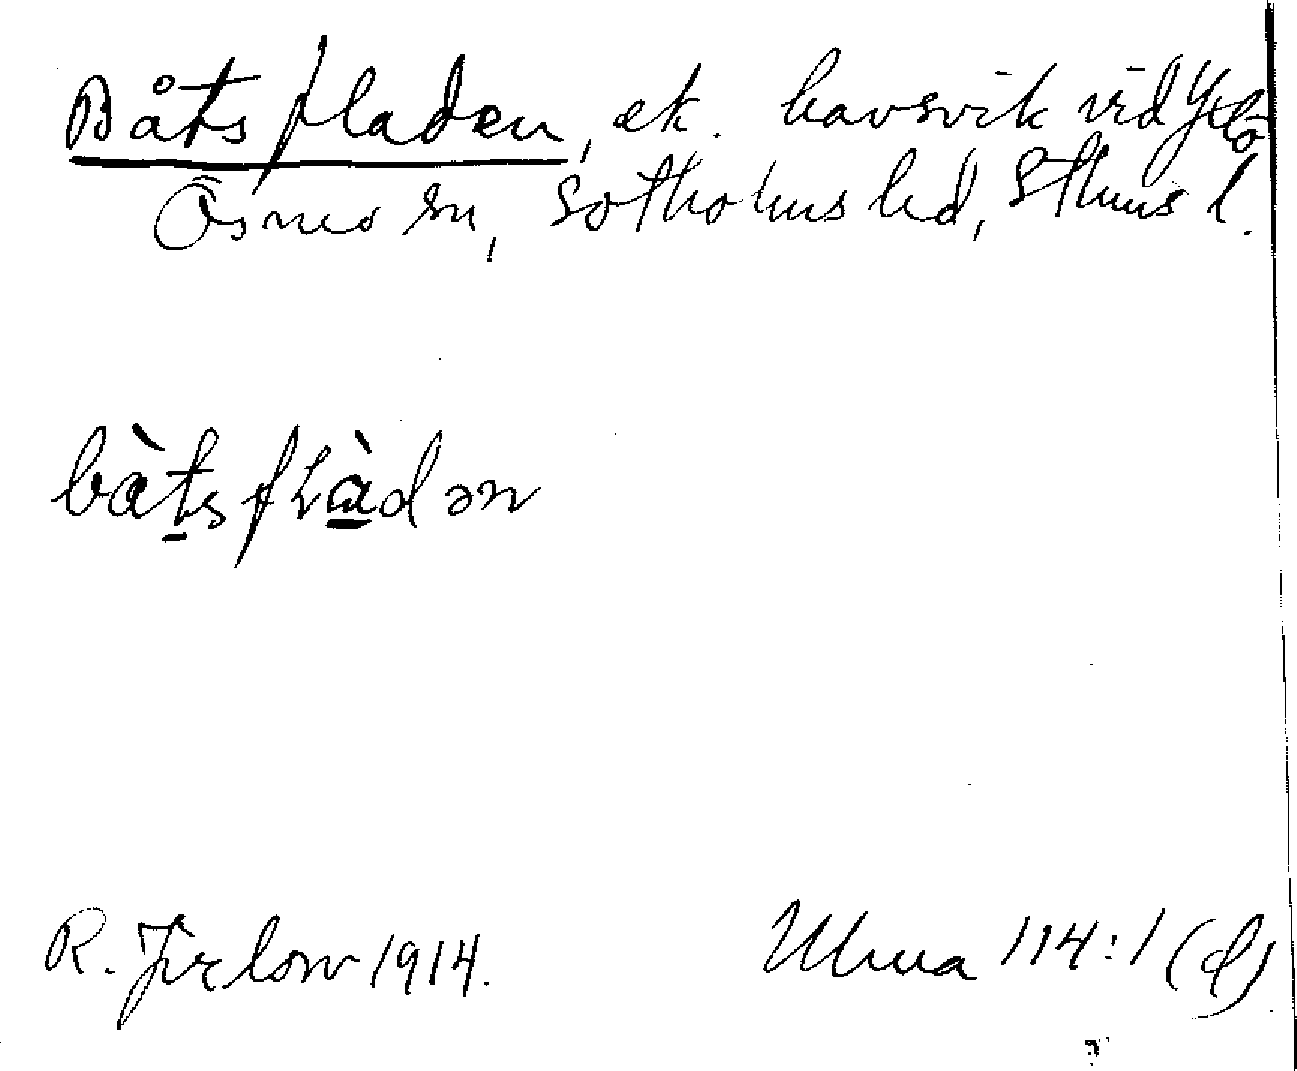 Båtsfladen, ek. havsvik vid Yxlö
Ösmo sn, Sotholms hd, Sthms l.
bàtsflàdən
R. Jirlow 1914.
Ulma 114:1 (d)